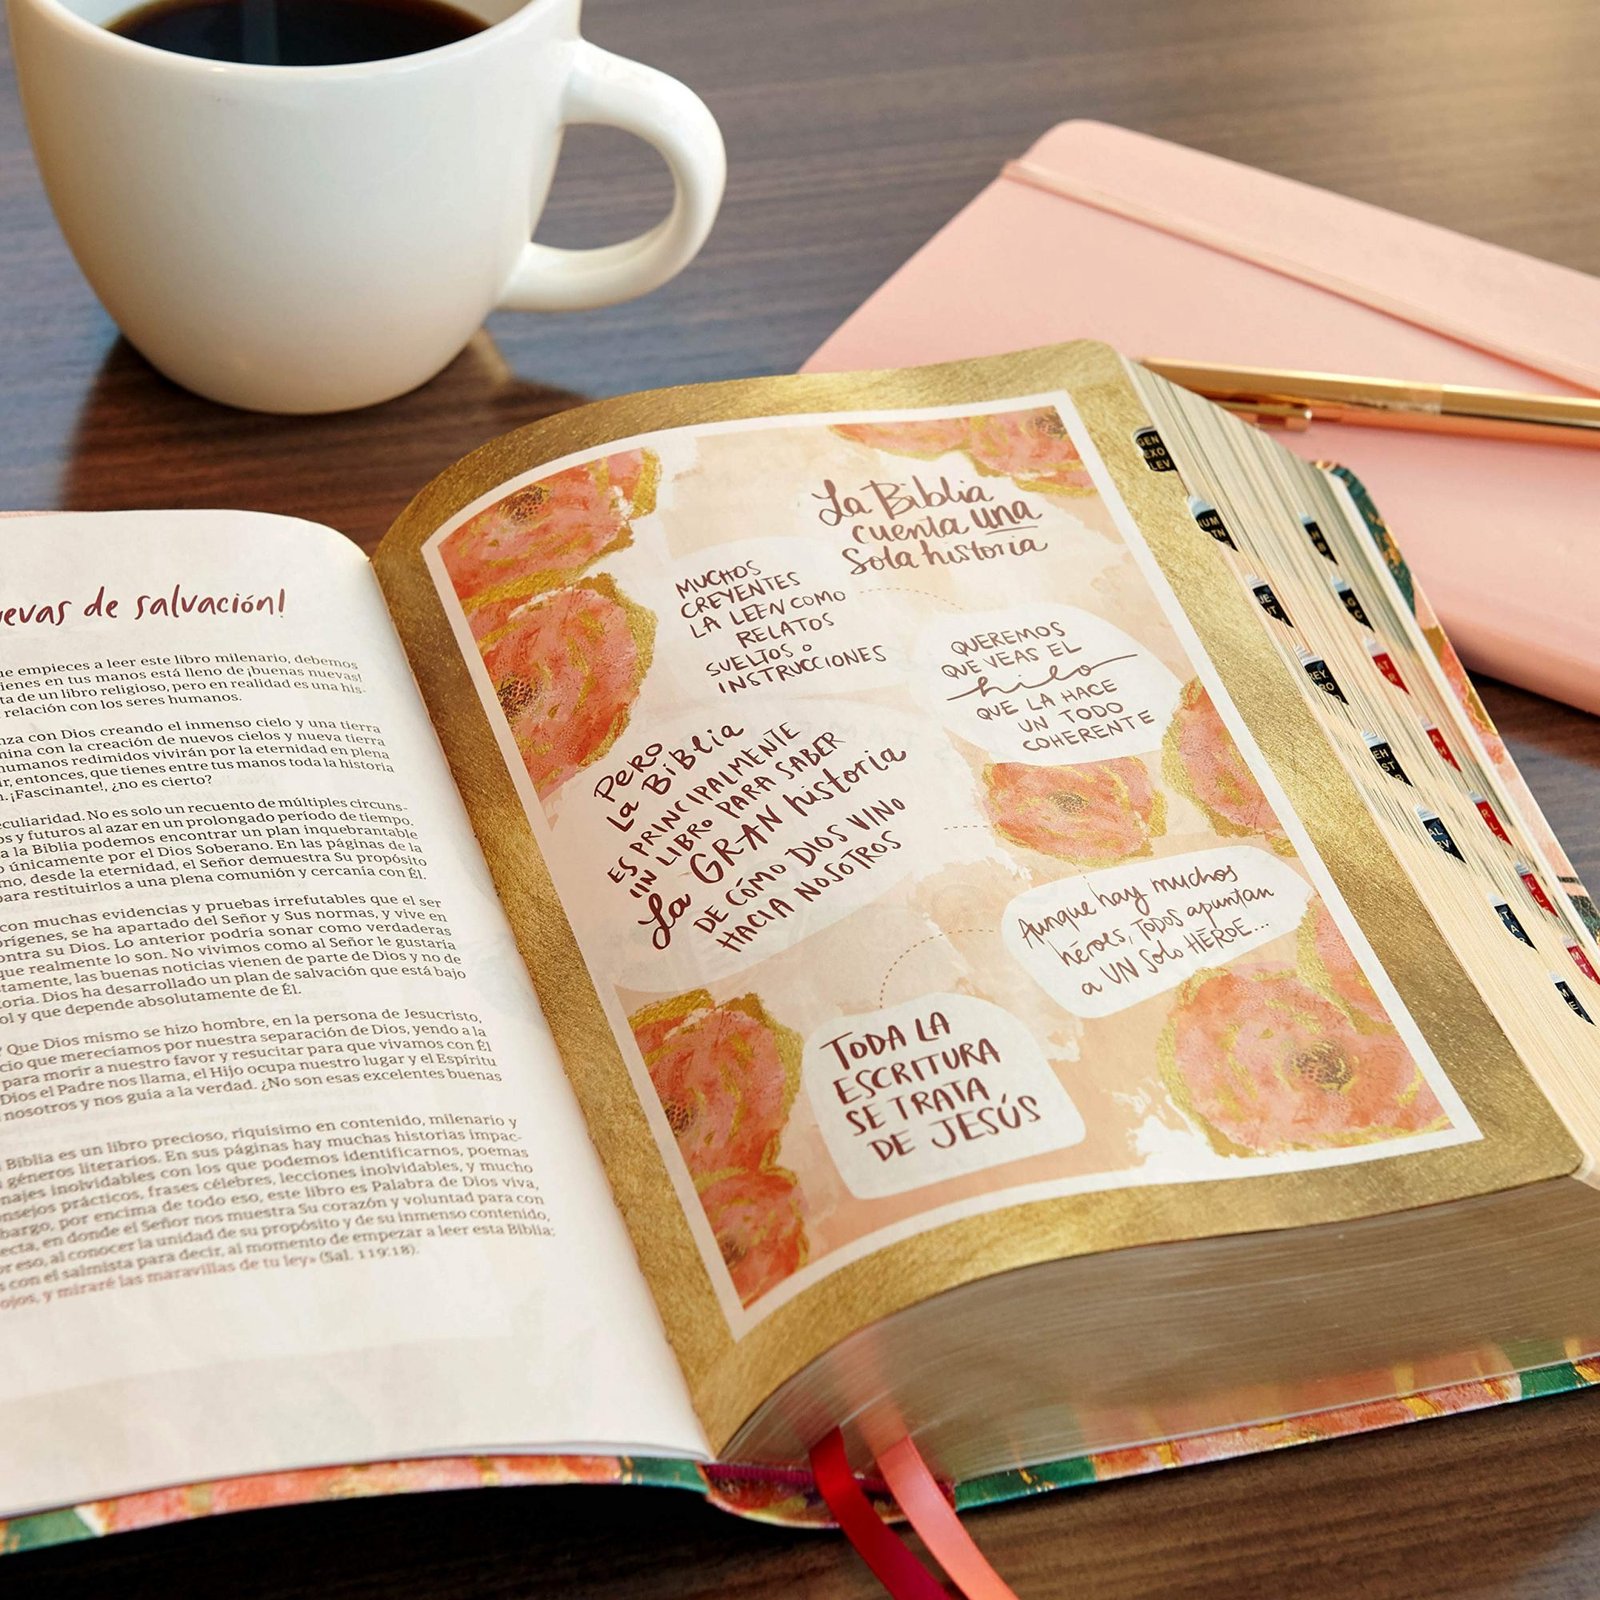 de salvación!
empieces a leer este libro milenario, debemos
en tus manos está lleno de ¡buenas nuevas!
de un libro religioso, pero en realidad es una his-
relación con los seres humanos.
con Dios creando el inmenso cielo y una tierra
con la creación de nuevos cielos y nueva tierra
humanos redimidos vivirán por la eternidad en plena
entonces, que tienes entre tus manos toda la historia
¡Fascinante!, ¿no es cierto?
No es solo un recuento de múltiples circuns-
y futuros al azar en un prolongado período de tiempo.
a la Biblia podemos encontrar un plan inquebrantable
únicamente por el Dios Soberano. En las páginas de la
desde la eternidad, el Señor demuestra Su propósito
para restituirlos a una plena comunión y cercanía con Él.
con muchas evidencias y pruebas irrefutables que el ser
se ha apartado del Señor y Sus normas, y vive en
contra su Dios. Lo anterior podría sonar como verdaderas
que realmente lo son. No vivimos como al Señor le gustaría
las buenas noticias vienen de parte de Dios y no de
Dios ha desarrollado un plan de salvación que está bajo
y que depende absolutamente de Él.
Que Dios mismo se hizo hombre, en la persona de Jesucristo,
que merecíamos por nuestra separación de Dios, yendo a la
para morir a nuestro favor y resucitar para que vivamos con Él
Dios el Padre nos llama, el Hijo ocupa nuestro lugar y el Espíritu
nosotros y nos guía a la verdad. ¿No son esas excelentes buenas
Biblia es un libro precioso, riquísimo en contenido, milenario y
géneros literarios. En sus páginas hay muchas historias impac-
inolvidables con los que podemos identificarnos, poemas
prácticos, frases célebres, lecciones inolvidables, y mucho
por encima de todo eso, este libro es Palabra de Dios viva,
en donde el Señor nos muestra Su corazón y voluntad para con
eso, al conocer la unidad de su propósito y de su inmenso contenido,
con el salmista para decir, al momento de empezar a leer esta Biblia:
y miraré las maravillas de tu ley» (Sal. 119:18).
La Biblia
cuenta una
Sola historia
MUCHOS
CREYENTES
LA LEEN COMO
RELATOS
SUELTOS O
INSTRUCCIONES
QUEREMOS
QUE VEAS EL
hilo
QUE LA HACE
UN TODO
COHERENTE
PERO
La BIBLIA
ES PRINCIPALMENTE
UN LIBRO PARA SABER
La GRAN historia
DE CÓMO DIOS VINO
HACIA NOSOTROS
Aunque hay muchos
héroes, TODOS apuntan
a UN Solo HÉROE...
TODA LA
ESCRITURA
SE TRATA
DE JESÚS
GEN
EXO
LEV